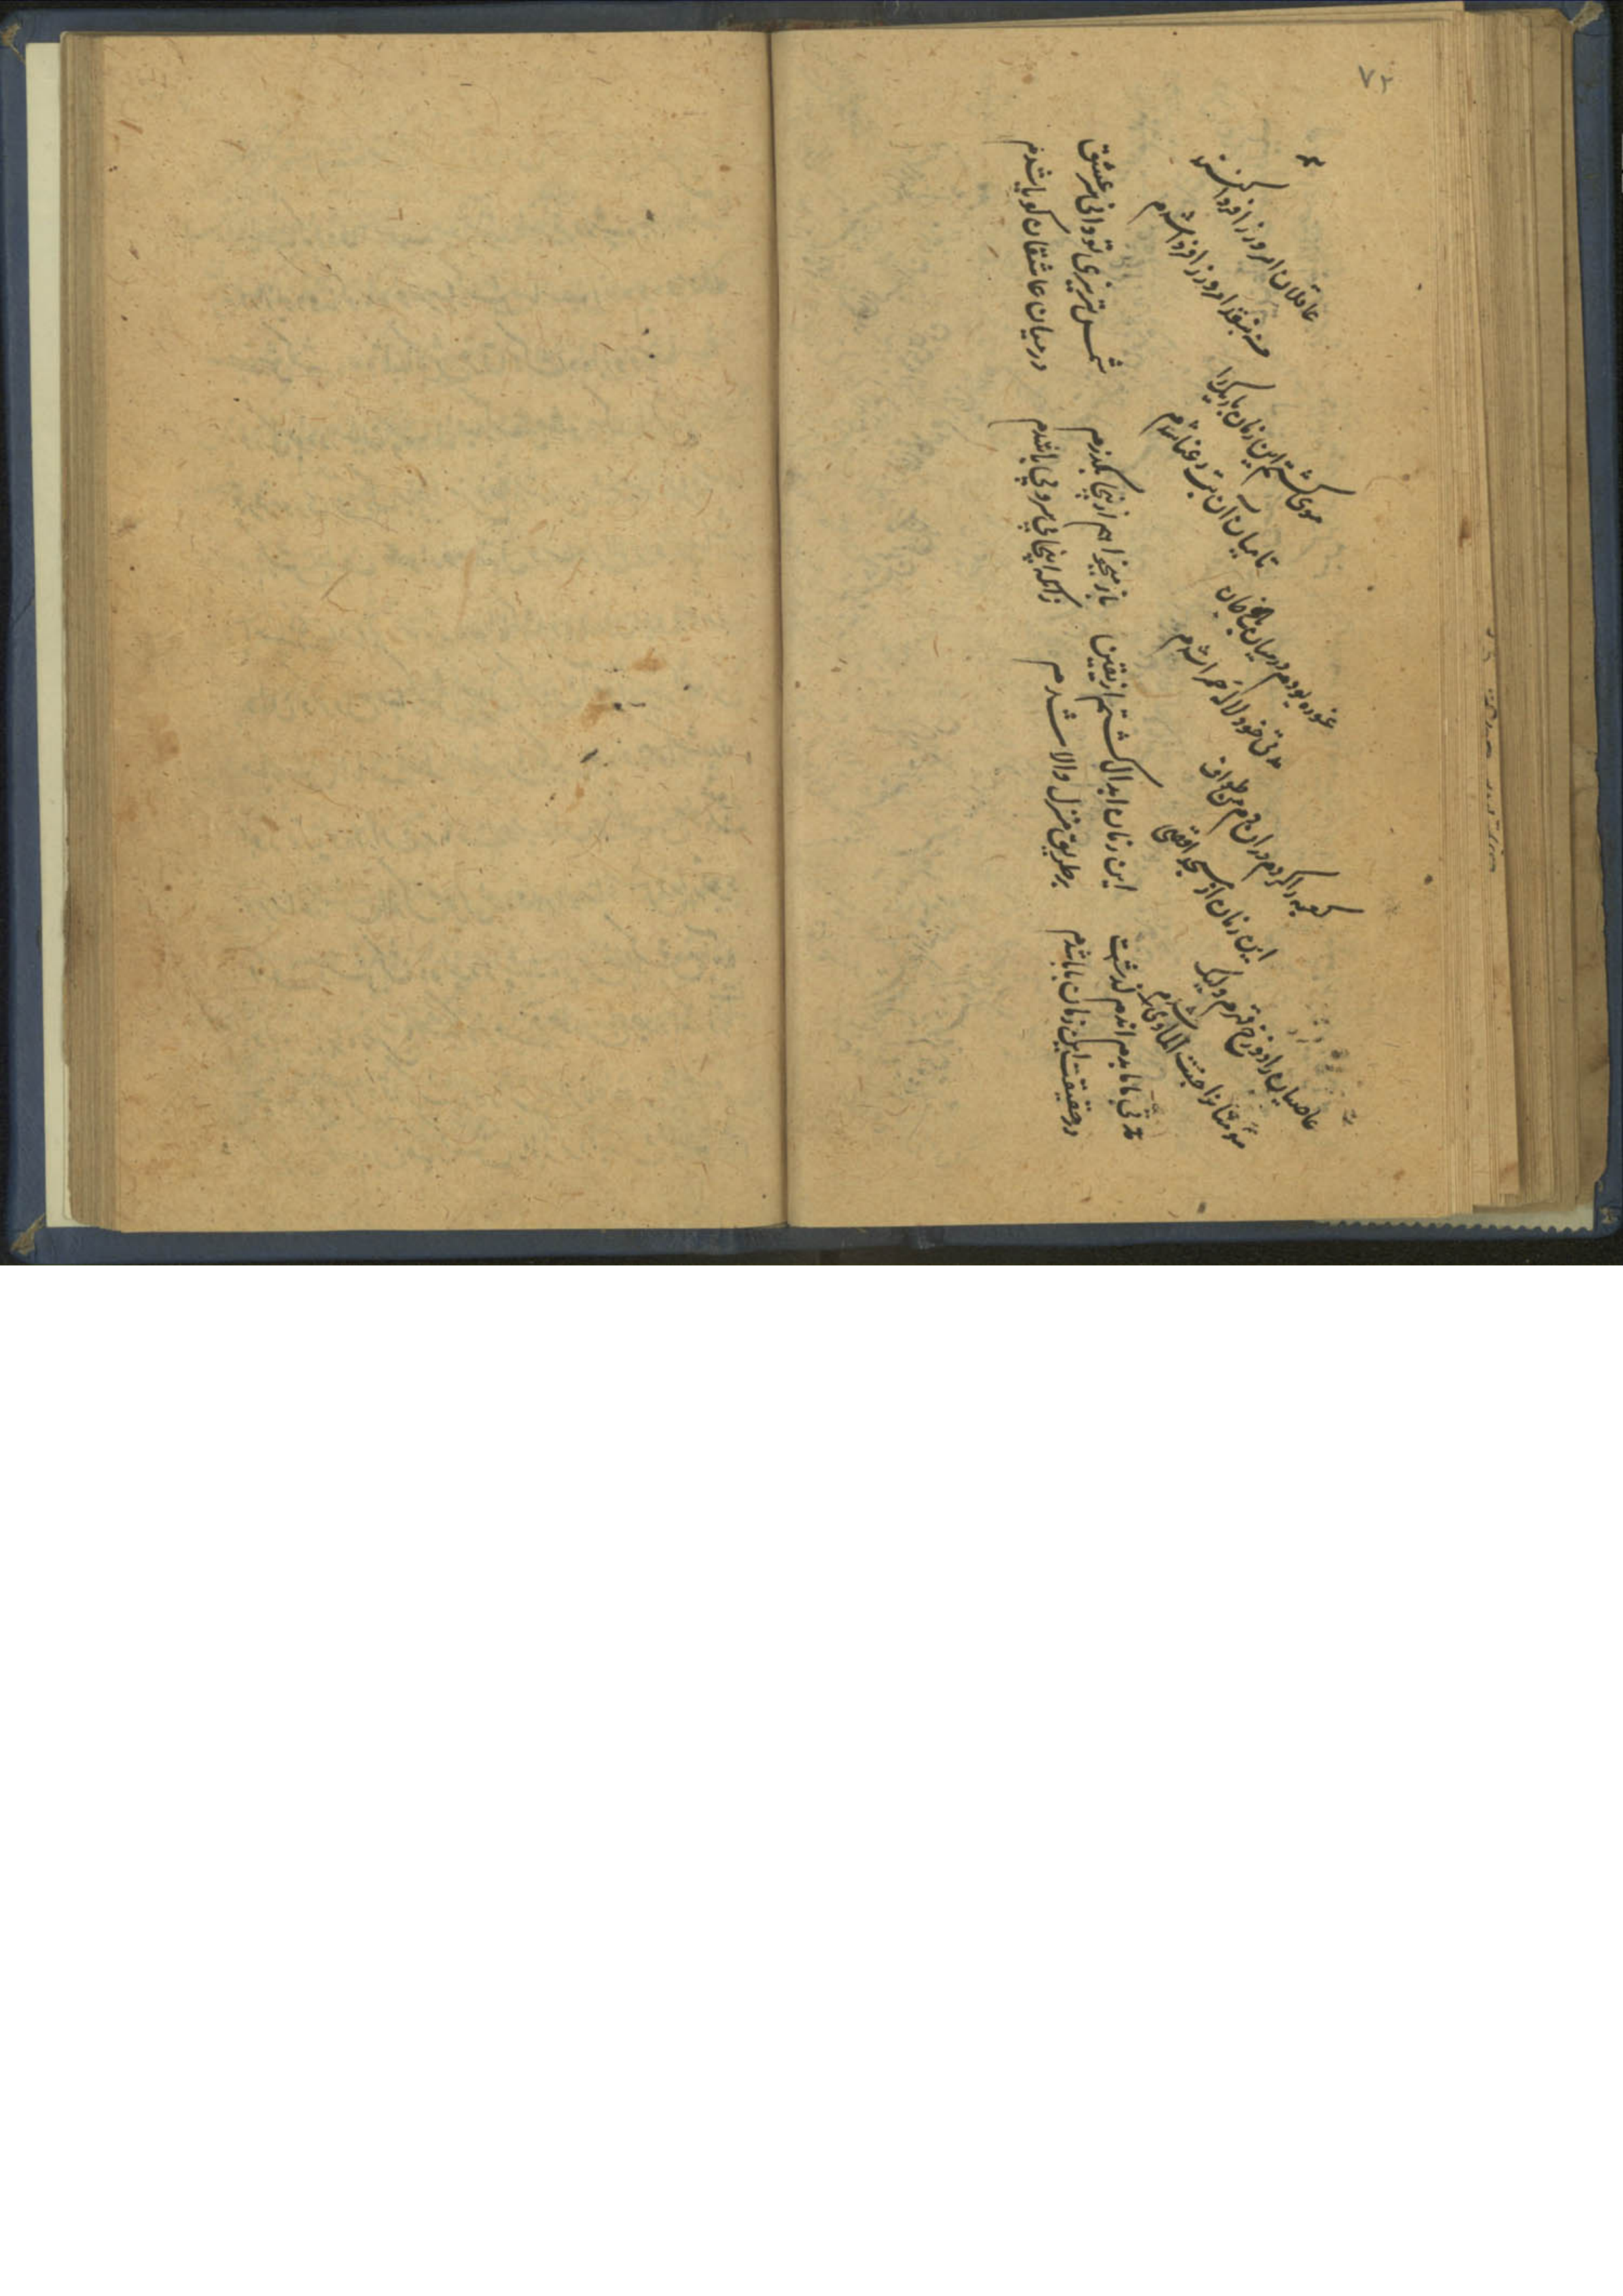 ۷۲
عاصیان را دوزخ قهرم ولیک
مؤمنانرا جنت الماوی شدم
کعبه را کردم در ان دم من طواف
این زمان از مسجد اقصی
غوره بودم در میان باغ جان
مدتی خود لاله حمرا شدم
موی کشتم این زمان باریک را
تا میان ان بت رعنا شدم
عاقلان امروز را فردا کنند
من بنقد امروز را فردا شدم
مدتی بابا بدم اندم گذشت
در حقیقت این زمان بابا شدم
این زمان ابدال کشتم از یقین
بر طریق منزل والا شدم
باز میخواهم ازینجا بکذرم
زانکه اینجا بی سر و بی پا شدم
شمس تبریزی تو دانی سر عشق
در میان عاشقان کویا شدم